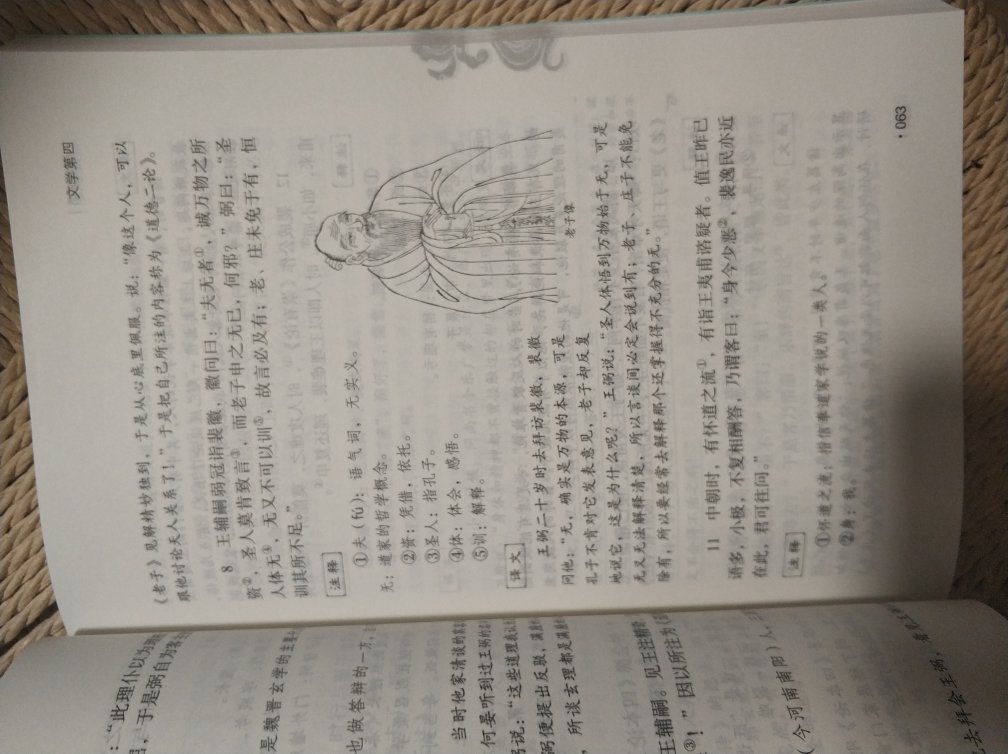 ：“此理仆以为
，于是弼自为客
是魏晋玄学的主要
也做答辩的一方，
当时他家清谈的
何晏听到过王弼的
说：“这些道理我认
弼便提出反驳，满座
，所谈玄理都是满座
王辅嗣。见王注精
③！”因以所注为
（今河南南阳）人，
去拜会王弼，看见
文学第四
《老子》见解精妙独到，于是从心底里佩服。说：“像这个人，可以
跟他讨论天人关系了！”于是把自己所注的内容称为《道德二论》。
8 王辅嗣弱冠诣裴徽，徽问曰：“夫无者①，诚万物之所
资②，圣人莫肯致言③，而老子申之无已，何邪？”弼曰：“圣
人体无④，无又不可以训⑤，故言必及有；老、庄未免于有，恒
训其所不足。”
注释
①夫（fú）：语气词，无实义。
无：道家的哲学概念。
②资：凭借，依托。
③圣人：指孔子。
④体：体会，感悟。
⑤训：解释。
老子像
译文
王弼二十岁时去拜访裴徽，裴徽
问他：“无，确实是万物的本源，可是
孔子不肯对它发表意见，老子却反复
地说它，这是为什么呢？”王弼说：“圣人体悟到万物始于无，可是
无又无法解释清楚，所以言谈间必定会说到有；老子、庄子不能免
除有，所以要经常去解释那个还掌握得不充分的无。”
11 中朝时，有怀道之流①，有诣王夷甫谘疑者。值王昨已
语多，小极，不复相酬答，乃谓客曰：“身今少恶②，裴逸民亦近
在此，君可往问。”
注释
①怀道之流：指信奉道家学说的一类人。
②身：我。
063